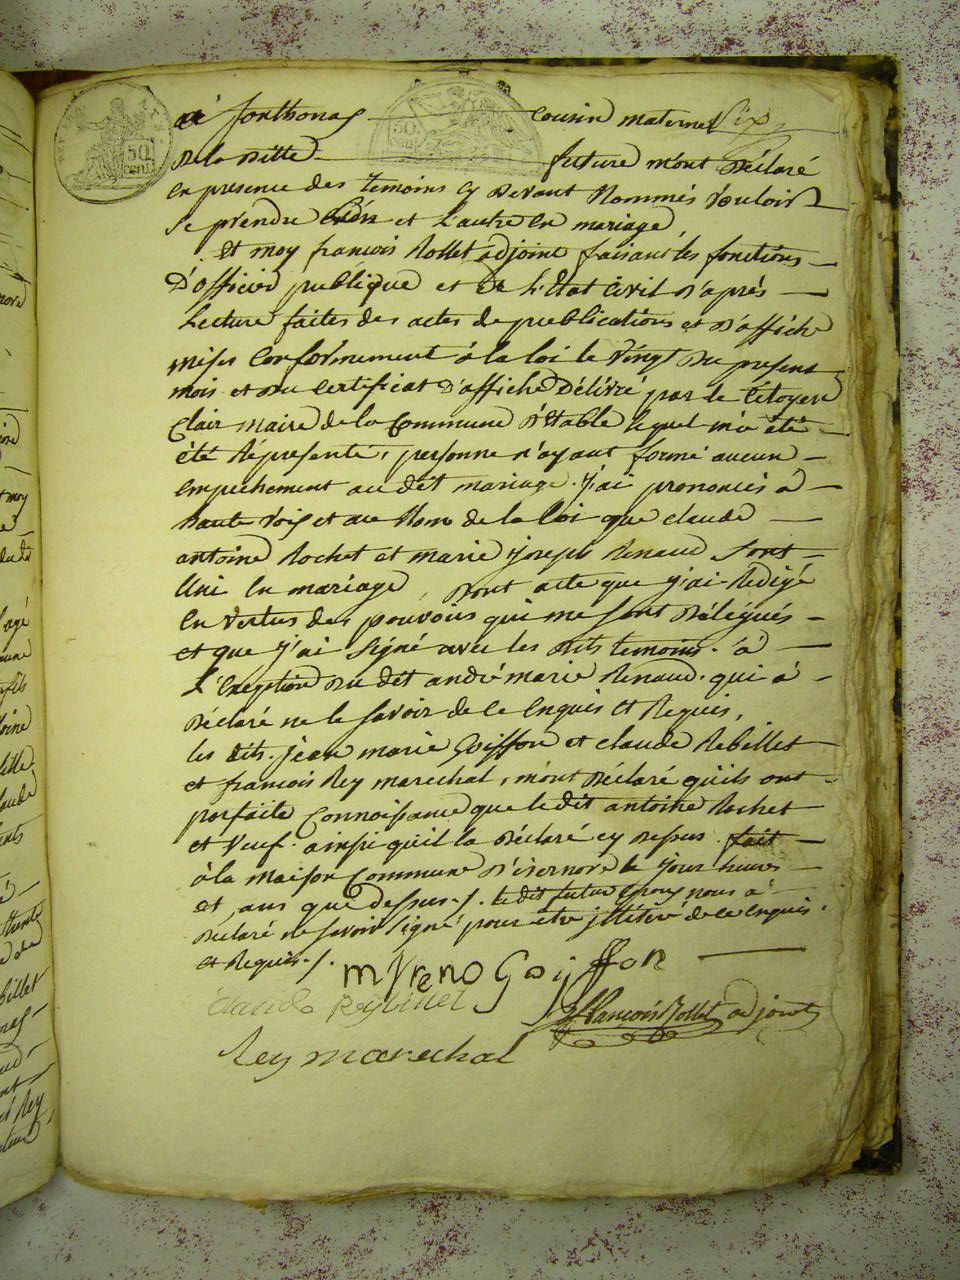 à Jonthonas cousin maternel Six
De la Ditte future m'ont Déclaré
En presence des temoins cy Devant Nommés Vouloir
Se prendre L'un et L'autre En mariage,
Et moy françois Rollet adjoint faisant les fonctions
D'officier publique et De L'Etat Civil D'après
Lecture faites des actes de publications et D'affiche
mises Conformement à la loi le Vingt Du present
mois et Du Certificat D'affiche Délivré par le Citoyen
Clair maire de la Commune D'Etable lequel m'a été
été Représenté, personne n'ayant formé aucun
Empechement au dit mariage. J'ai prononcés à
haute Vois et au Nom de la loi que claude
antoine Rochet et marie joseph Renaud Sont
Uni En mariage Dont acte que J'ai Redigé
En Vertus des pouvoirs qui me Sont Délégués
et que J'ai Signé avec les Dits temoins. à
L'Exeption Du dit andré marie Renaud. qui à
Déclaré ne le Savoir de Ce Enquis Et Requis,
les dits. Jean marie Goiffon et claude Rebillet
et françois Rey marechal, m'ont Déclaré qu'ils ont
parfaite Connoissance que le dit antoine Rochet
et Veuf. ainsi qu'il la Déclaré cy Dessus. fait
à la Maison Commune D'isernore le Jour heures
et ans que Dessus./. le dit futur Epoux nous à
Declaré ne Savoir Signé pour être illitéré de ce Enquis
et Requis./.
m j reno Goiffon
claude Reybillet
françois Rollet adjoint
Rey marechal
50 cen
50 cen